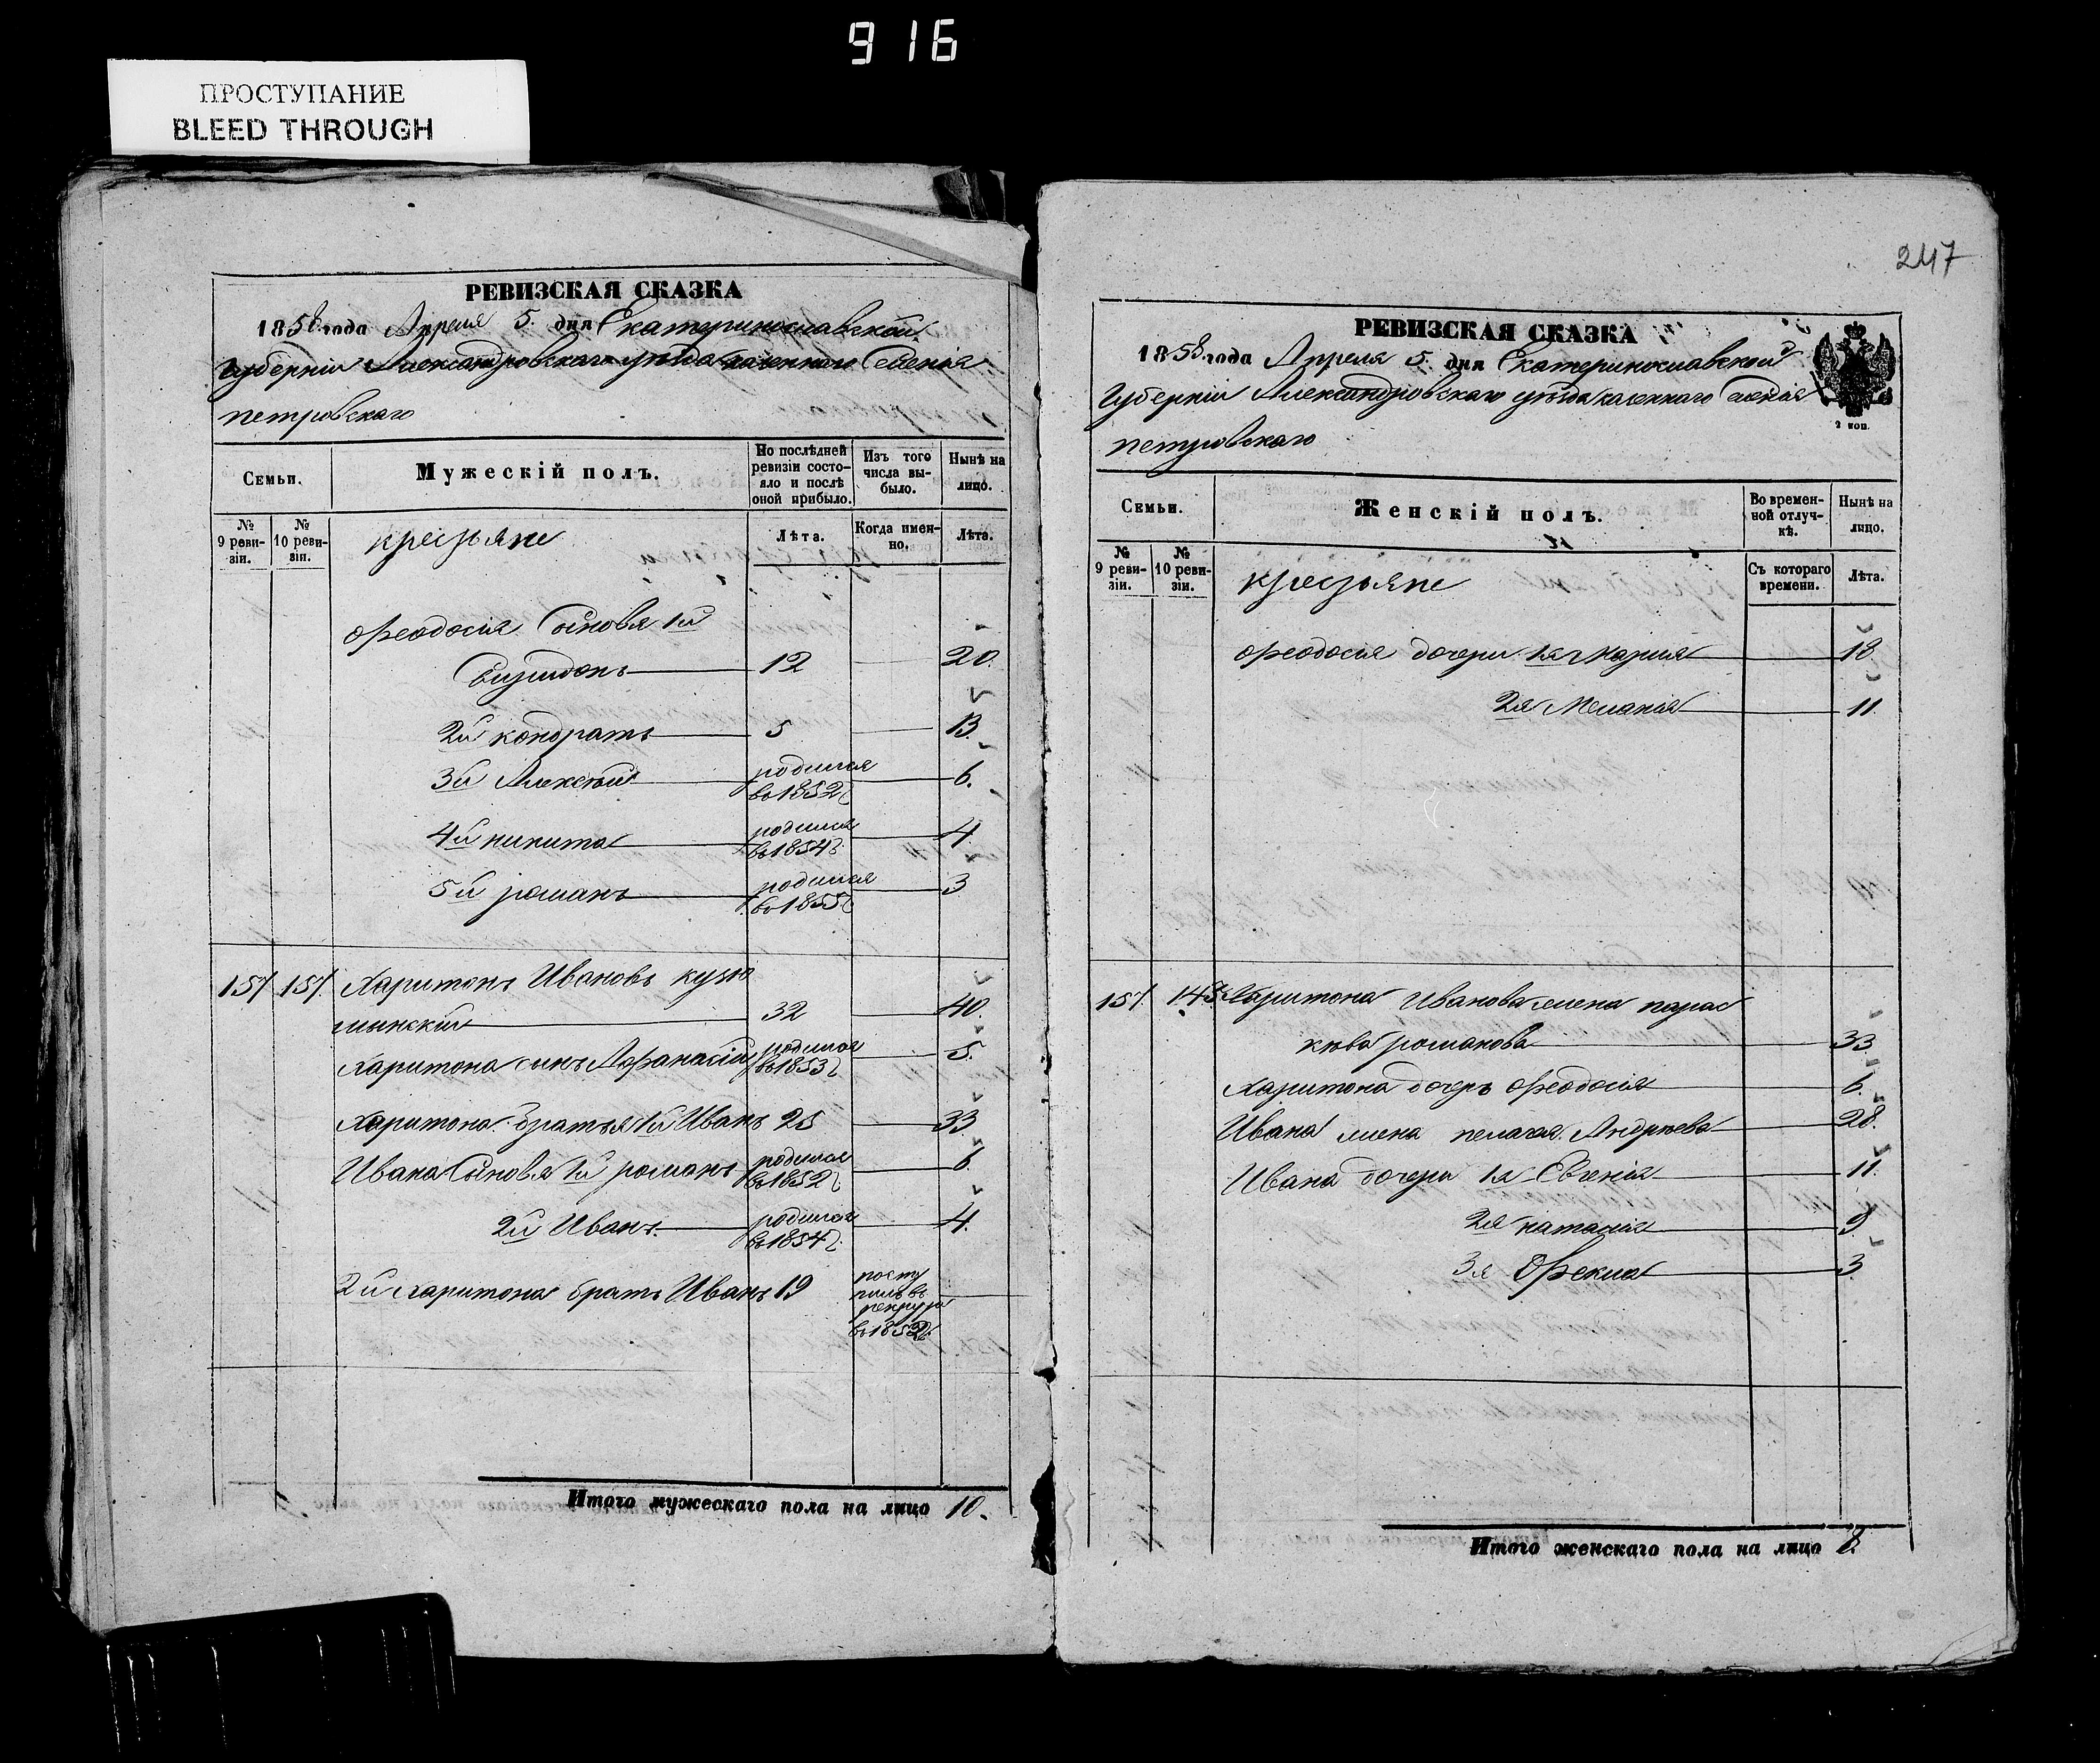 916
ПРОСТУПАНИЕ
BLEED THROUGH
РЕВИЗСКАЯ СКАЗКА
1858 года Апреля 5. дня Екатеринославской
Губерніи Александровскаго уѣзда казеннаго Селенія
петровскаго
Семьи.
Мужескій полъ.
По послѣдней ревизіи состояло и послѣ оной прибыло.
Изъ того числа выбыло.
Нынѣ на лицо.
№ 9 ревизіи.
№ 10 ревизіи.
крестьяне
Лѣта.
Когда именно.
Лѣта.
Ѳеодосія Сыновя 1й
Спиридонъ 12 20.
2й кондратъ 5 13.
3й Алексѣй родился въ 1852 г 6.
4й никита родился въ 1854 г. 4
5й романъ родился въ 1855 г 3
151 151. Харитонъ Ивановъ кузю
мынскій 32 40.
Харитона сынъ Афанасій родился въ 1853 г 5.
Харитона братья 1й Иванъ 25 33
Ивана Сыновя 1й романъ родился въ 1852 г. 6.
2й Иванъ. родился въ 1854 г. 4.
2й Харитона братъ Иванъ 19 поступилъ въ рекруты въ 1852 г.
Итого мужескаго пола на лицо 10.
247
РЕВИЗСКАЯ СКАЗКА
1858 года Апреля 5. дня Екатеринославской
Губерніи Александровскаго уѣзда казеннаго Селенія
петровскаго
2 коп.
Семьи.
Женскій полъ.
Во временной отлучкѣ.
Нынѣ на лицо.
№ 9 ревизіи.
№ 10 ревизіи.
крестьяне
Съ котораго времени.
Лѣта.
Ѳеодосія дочери 1я Марія 18.
2я Меланія 11.
151 Харитона Иванова жена парас
кѣва романова 33
Харитона дочерь Ѳеодосія 6.
Ивана жена пелагея Андрѣева 28.
Ивана дочери 1я Евгенія 11.
2я наталія 9.
3я Ѳекла 3
Итого женскаго пола на лицо 8.